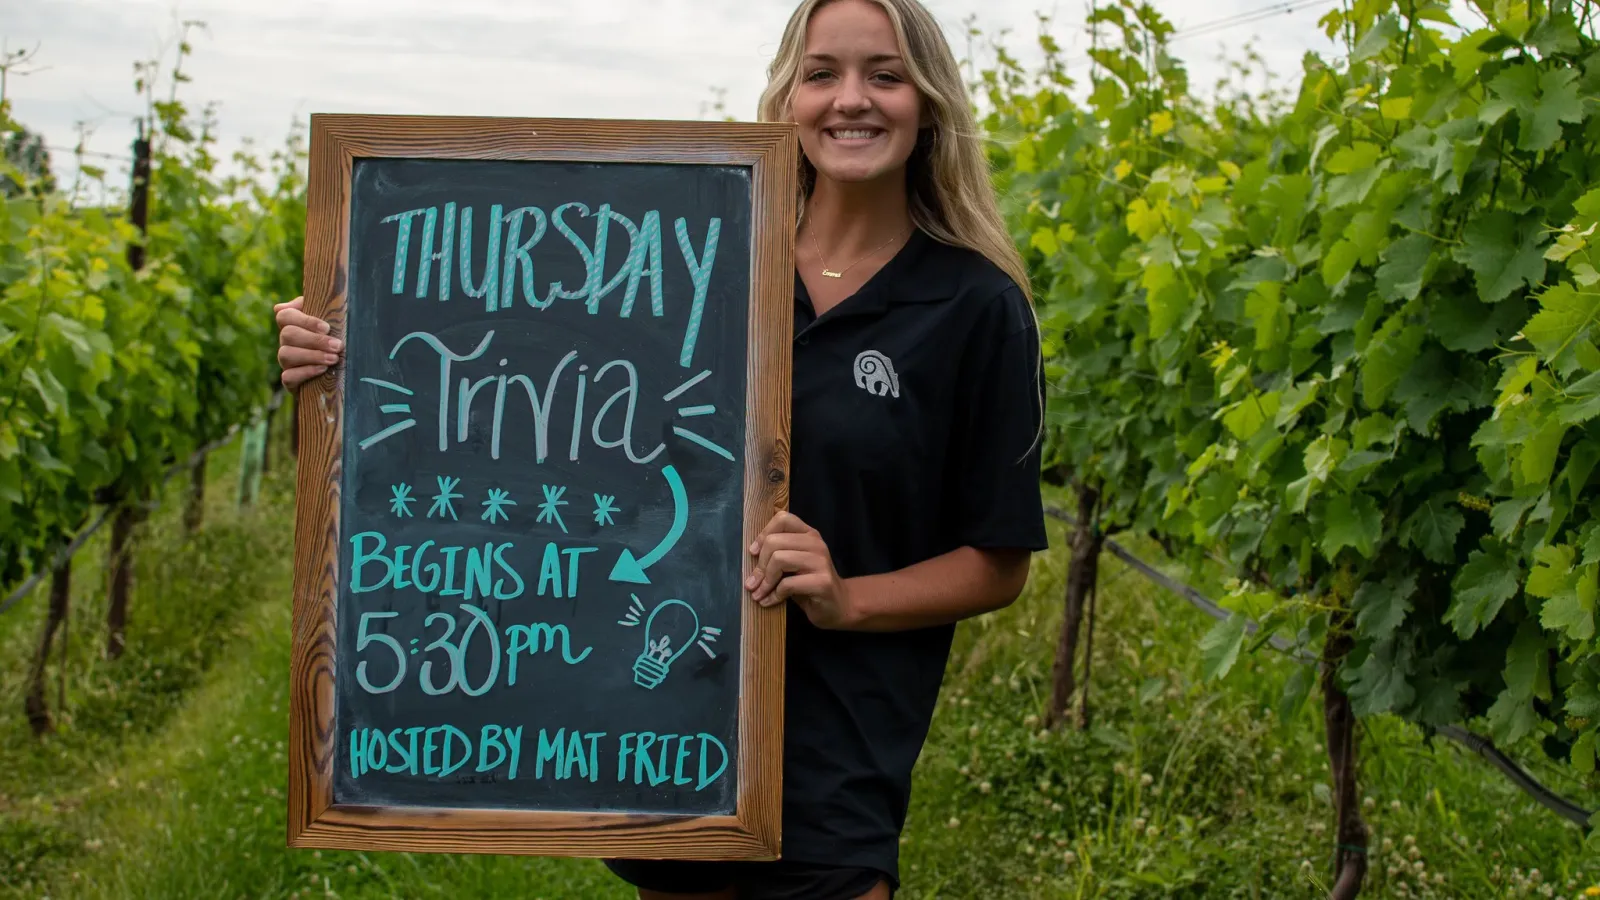 THURSDAY
Trivia
BEGINS AT
5:30pm
HOSTED BY MAT FRIED
Emma